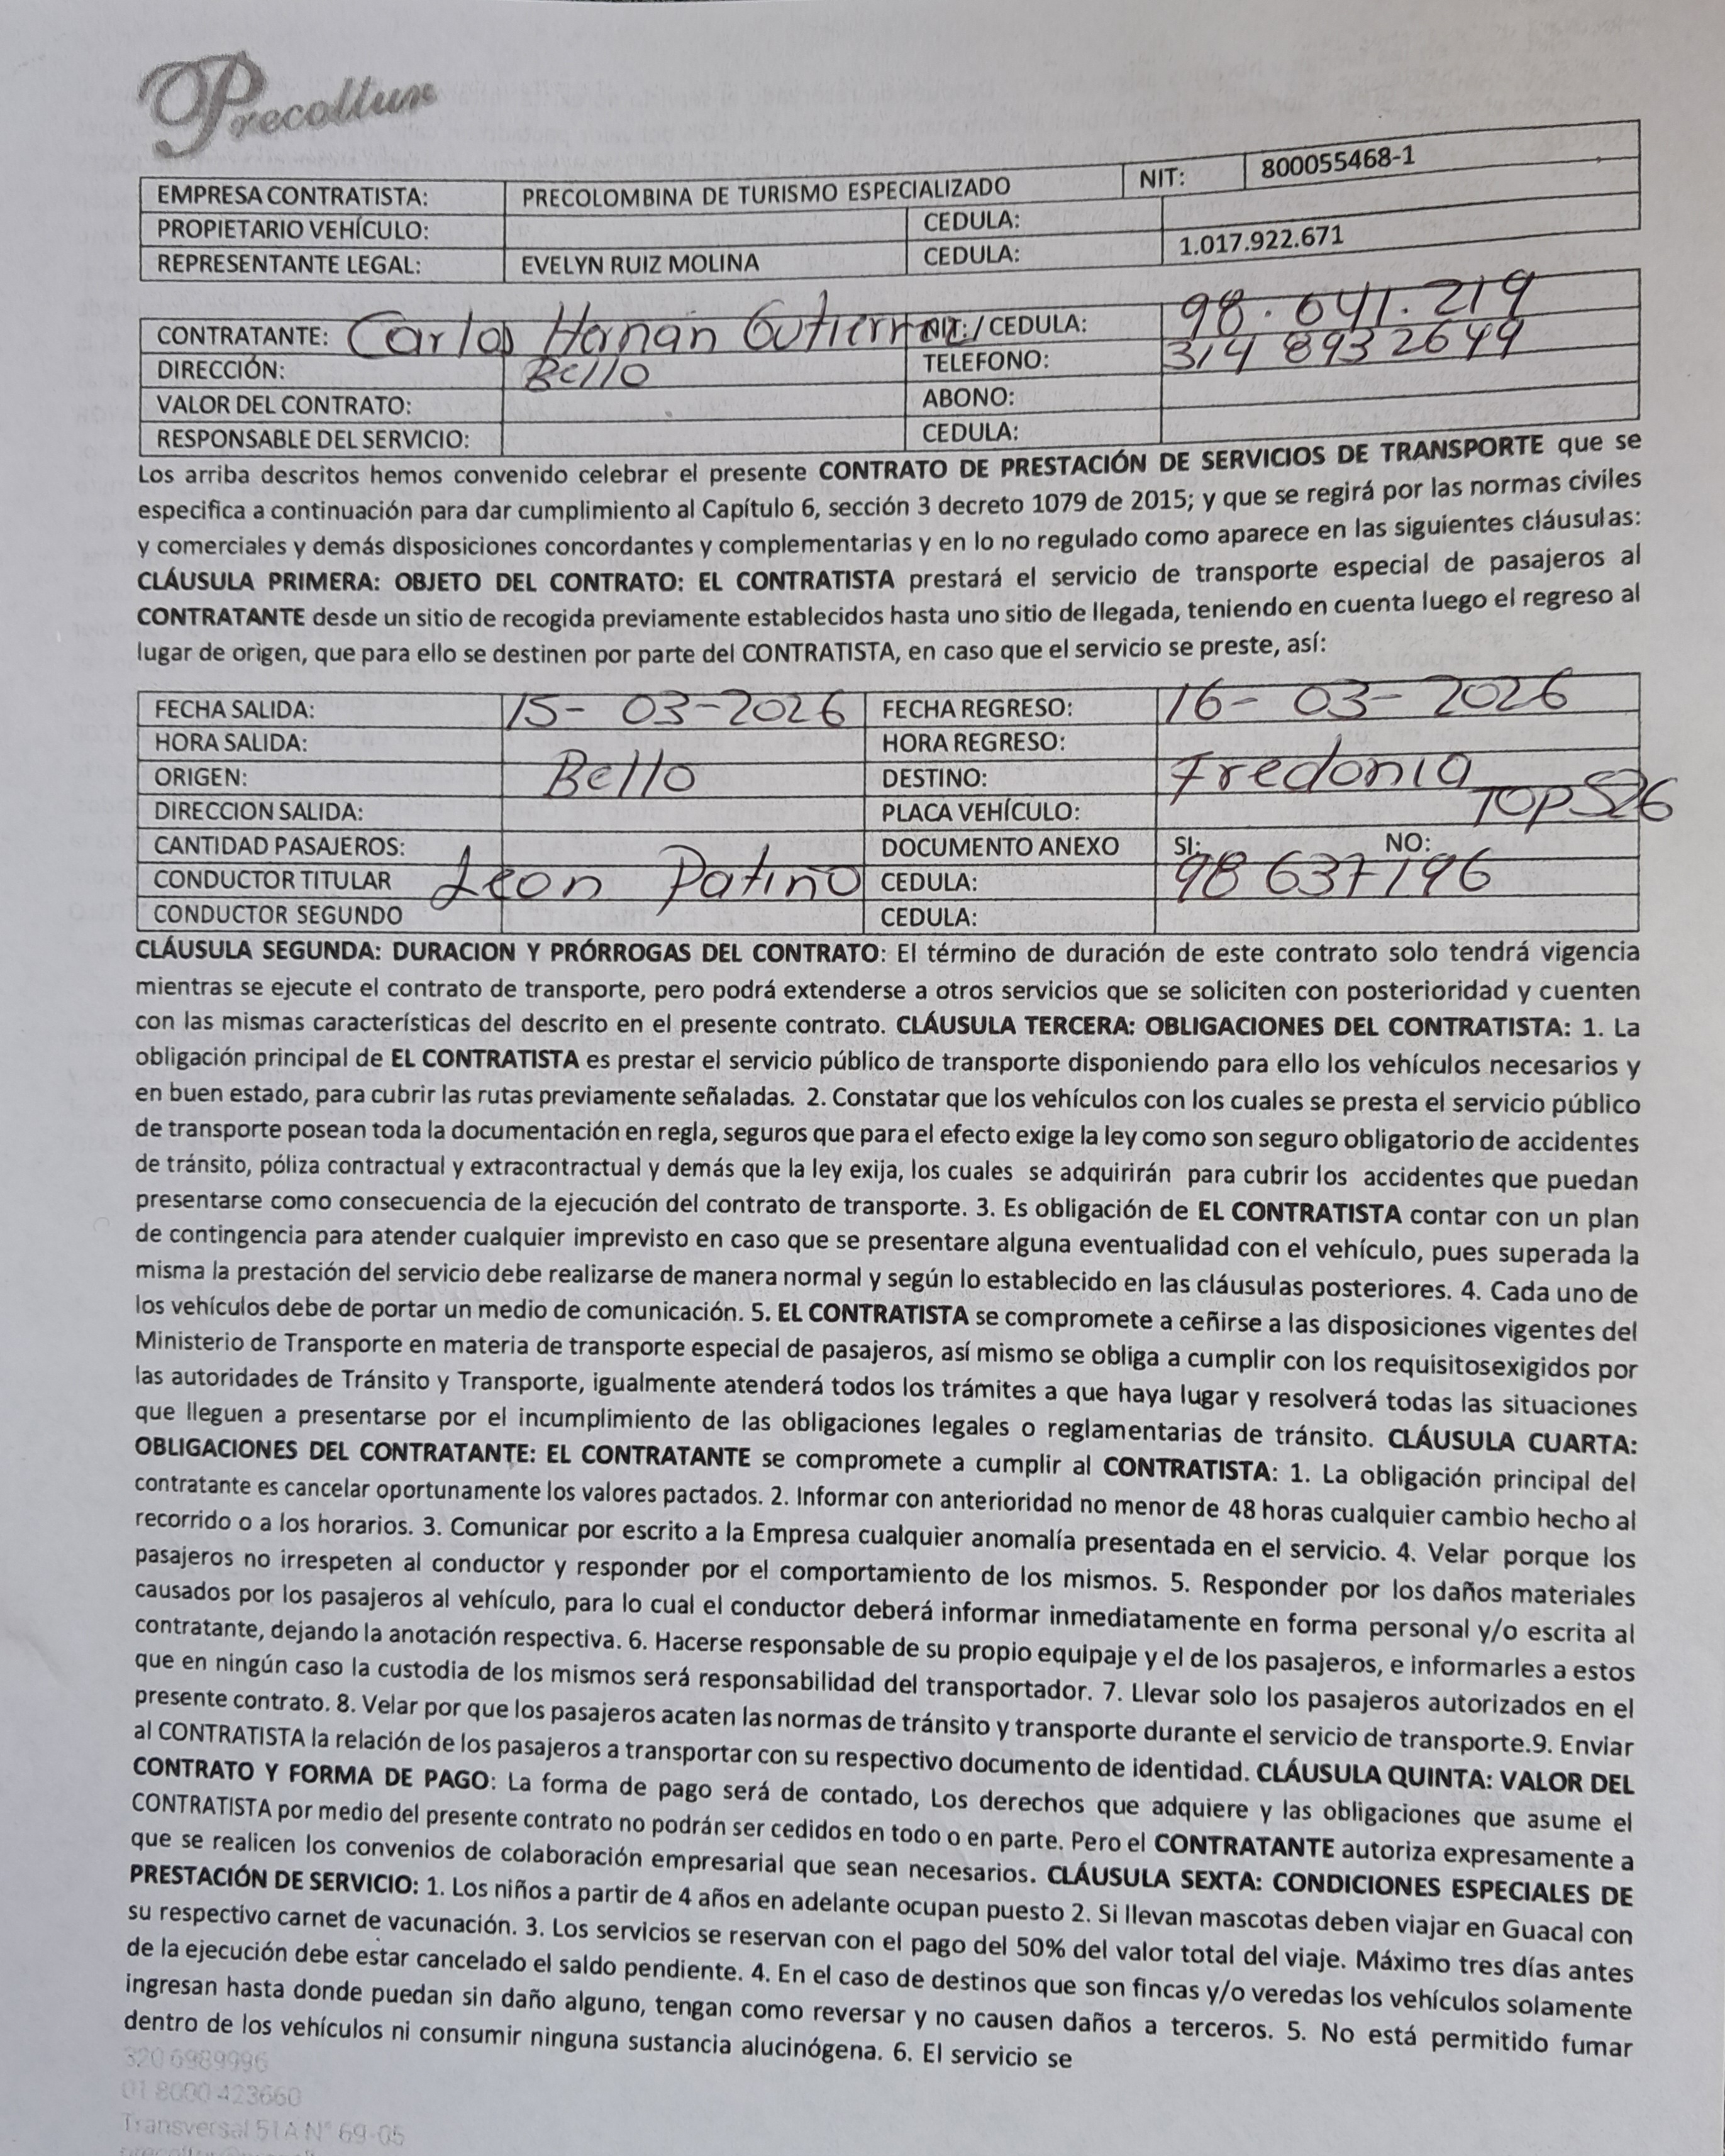 Precoltur
EMPRESA CONTRATISTA: PRECOLOMBINA DE TURISMO ESPECIALIZADO NIT: 800055468-1
PROPIETARIO VEHÍCULO: CEDULA:
REPRESENTANTE LEGAL: EVELYN RUIZ MOLINA CEDULA: 1.017.922.671
CONTRATANTE: Carlos Hernán Gutierrez NIT:/CEDULA: 98.641.219
DIRECCIÓN: Bello TELEFONO: 314 893 2649
VALOR DEL CONTRATO: ABONO:
RESPONSABLE DEL SERVICIO: CEDULA:
Los arriba descritos hemos convenido celebrar el presente CONTRATO DE PRESTACIÓN DE SERVICIOS DE TRANSPORTE que se
especifica a continuación para dar cumplimiento al Capítulo 6, sección 3 decreto 1079 de 2015; y que se regirá por las normas civiles
y comerciales y demás disposiciones concordantes y complementarias y en lo no regulado como aparece en las siguientes cláusulas:
CLÁUSULA PRIMERA: OBJETO DEL CONTRATO: EL CONTRATISTA prestará el servicio de transporte especial de pasajeros al
CONTRATANTE desde un sitio de recogida previamente establecidos hasta uno sitio de llegada, teniendo en cuenta luego el regreso al
lugar de origen, que para ello se destinen por parte del CONTRATISTA, en caso que el servicio se preste, así:
FECHA SALIDA: 15-03-2026 FECHA REGRESO: 16-03-2026
HORA SALIDA: HORA REGRESO:
ORIGEN: Bello DESTINO: Fredonia
DIRECCION SALIDA: PLACA VEHÍCULO: TOP526
CANTIDAD PASAJEROS: DOCUMENTO ANEXO SI: NO:
CONDUCTOR TITULAR Leon Patiño CEDULA: 98 637196
CONDUCTOR SEGUNDO CEDULA:
CLÁUSULA SEGUNDA: DURACION Y PRÓRROGAS DEL CONTRATO: El término de duración de este contrato solo tendrá vigencia
mientras se ejecute el contrato de transporte, pero podrá extenderse a otros servicios que se soliciten con posterioridad y cuenten
con las mismas características del descrito en el presente contrato. CLÁUSULA TERCERA: OBLIGACIONES DEL CONTRATISTA: 1. La
obligación principal de EL CONTRATISTA es prestar el servicio público de transporte disponiendo para ello los vehículos necesarios y
en buen estado, para cubrir las rutas previamente señaladas. 2. Constatar que los vehículos con los cuales se presta el servicio público
de transporte posean toda la documentación en regla, seguros que para el efecto exige la ley como son seguro obligatorio de accidentes
de tránsito, póliza contractual y extracontractual y demás que la ley exija, los cuales se adquirirán para cubrir los accidentes que puedan
presentarse como consecuencia de la ejecución del contrato de transporte. 3. Es obligación de EL CONTRATISTA contar con un plan
de contingencia para atender cualquier imprevisto en caso que se presentare alguna eventualidad con el vehículo, pues superada la
misma la prestación del servicio debe realizarse de manera normal y según lo establecido en las cláusulas posteriores. 4. Cada uno de
los vehículos debe de portar un medio de comunicación. 5. EL CONTRATISTA se compromete a ceñirse a las disposiciones vigentes del
Ministerio de Transporte en materia de transporte especial de pasajeros, así mismo se obliga a cumplir con los requisitosexigidos por
las autoridades de Tránsito y Transporte, igualmente atenderá todos los trámites a que haya lugar y resolverá todas las situaciones
que lleguen a presentarse por el incumplimiento de las obligaciones legales o reglamentarias de tránsito. CLÁUSULA CUARTA:
OBLIGACIONES DEL CONTRATANTE: EL CONTRATANTE se compromete a cumplir al CONTRATISTA: 1. La obligación principal del
contratante es cancelar oportunamente los valores pactados. 2. Informar con anterioridad no menor de 48 horas cualquier cambio hecho al
recorrido o a los horarios. 3. Comunicar por escrito a la Empresa cualquier anomalía presentada en el servicio. 4. Velar porque los
pasajeros no irrespeten al conductor y responder por el comportamiento de los mismos. 5. Responder por los daños materiales
causados por los pasajeros al vehículo, para lo cual el conductor deberá informar inmediatamente en forma personal y/o escrita al
contratante, dejando la anotación respectiva. 6. Hacerse responsable de su propio equipaje y el de los pasajeros, e informarles a estos
que en ningún caso la custodia de los mismos será responsabilidad del transportador. 7. Llevar solo los pasajeros autorizados en el
presente contrato. 8. Velar por que los pasajeros acaten las normas de tránsito y transporte durante el servicio de transporte.9. Enviar
al CONTRATISTA la relación de los pasajeros a transportar con su respectivo documento de identidad. CLÁUSULA QUINTA: VALOR DEL
CONTRATO Y FORMA DE PAGO: La forma de pago será de contado, Los derechos que adquiere y las obligaciones que asume el
CONTRATISTA por medio del presente contrato no podrán ser cedidos en todo o en parte. Pero el CONTRATANTE autoriza expresamente a
que se realicen los convenios de colaboración empresarial que sean necesarios. CLÁUSULA SEXTA: CONDICIONES ESPECIALES DE
PRESTACIÓN DE SERVICIO: 1. Los niños a partir de 4 años en adelante ocupan puesto 2. Si llevan mascotas deben viajar en Guacal con
su respectivo carnet de vacunación. 3. Los servicios se reservan con el pago del 50% del valor total del viaje. Máximo tres días antes
de la ejecución debe estar cancelado el saldo pendiente. 4. En el caso de destinos que son fincas y/o veredas los vehículos solamente
ingresan hasta donde puedan sin daño alguno, tengan como reversar y no causen daños a terceros. 5. No está permitido fumar
dentro de los vehículos ni consumir ninguna sustancia alucinógena. 6. El servicio se
320 6989996
01 8000 423660
Transversal 51A N° 69-05